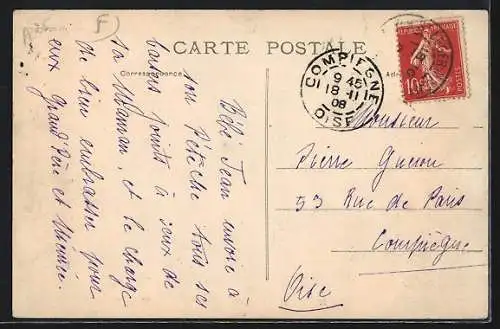 F
CARTE POSTALE
Correspondance
COMPIEGNE
9 45
18 - 11
08
OISE
REPUBLIQUE FRANÇAISE
10
POSTES
Bébé Jean envoie à
son Pépèche tous ses
baisers joints à ceux de
sa Maman, et le charge
de bien embrasser pour
eux Grand'Père et Mémée.
Monsieur
Pierre
53 Rue de Paris
Compiègne
Oise